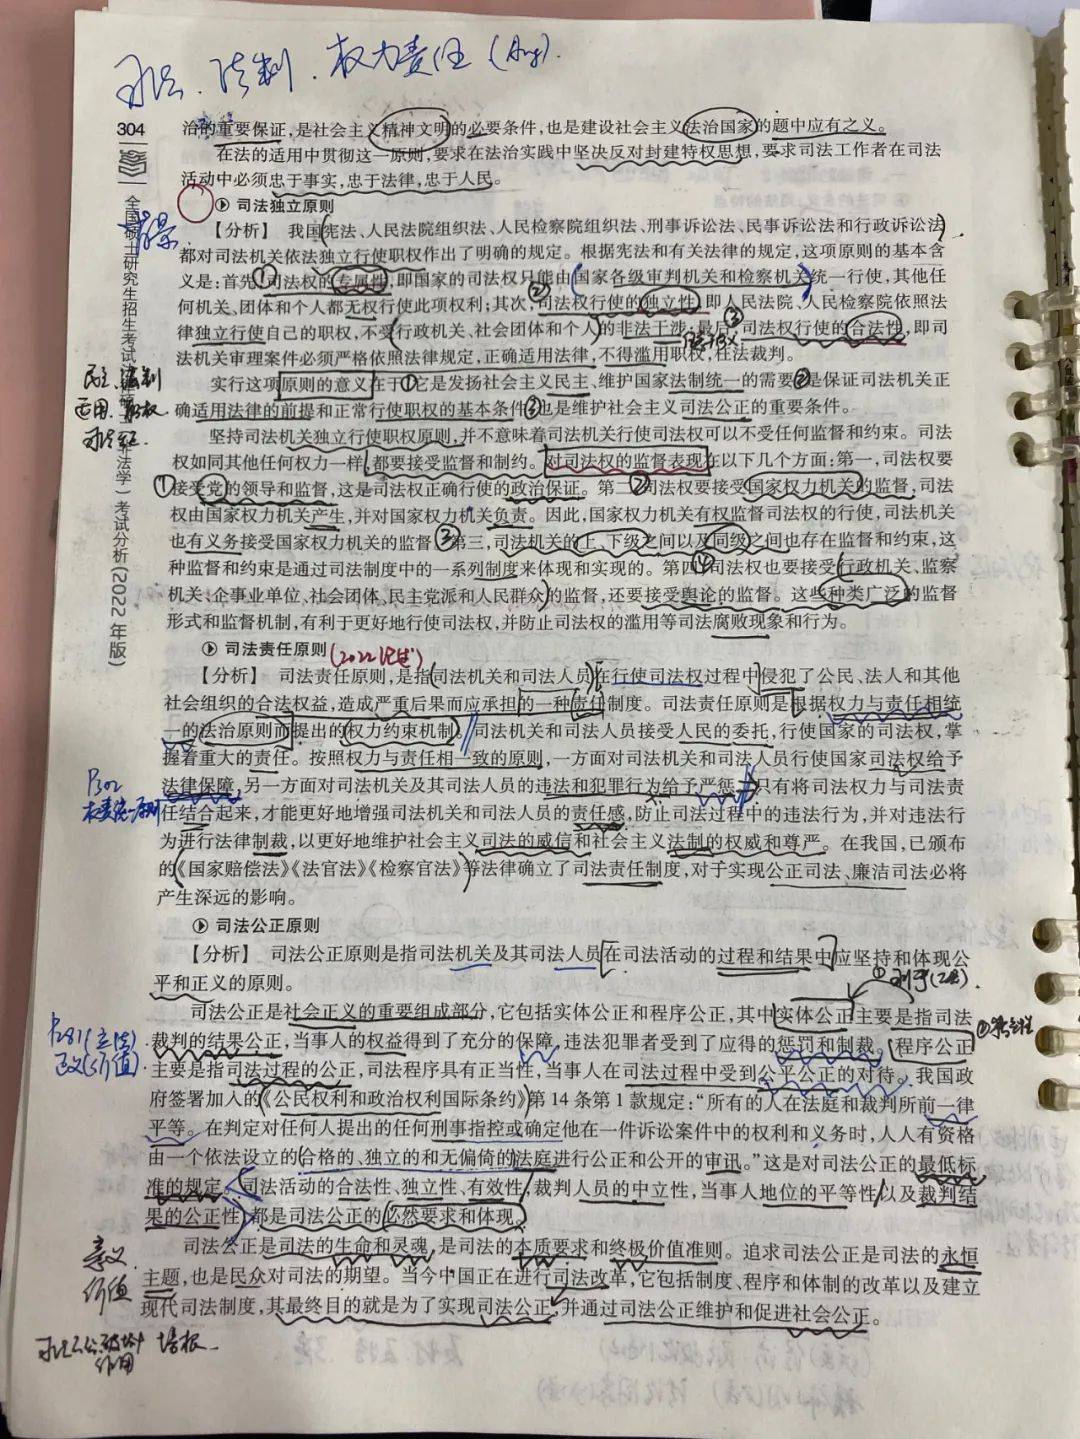 司法、法制、权力责任
304
治的重要保证，是社会主义精神文明的必要条件，也是建设社会主义法治国家的题中应有之义。
在法的适用中贯彻这一原则，要求在法治实践中坚决反对封建特权思想，要求司法工作者在司法
活动中必须忠于事实，忠于法律，忠于人民。
司法独立原则
背景
【分析】 我国宪法、人民法院组织法、人民检察院组织法、刑事诉讼法、民事诉讼法和行政诉讼法
都对司法机关依法独立行使职权作出了明确的规定。根据宪法和有关法律的规定，这项原则的基本含
义是：首先，司法权的专属性，即国家的司法权只能由国家各级审判机关和检察机关统一行使，其他任
何机关、团体和个人都无权行使此项权利；其次，司法权行使的独立性，即人民法院、人民检察院依照法
律独立行使自己的职权，不受行政机关、社会团体和个人的非法干涉；最后，司法权行使的合法性，即司
法机关审理案件必须严格依照法律规定，正确适用法律，不得滥用职权，枉法裁判。
民主、法制
适用、职权
司公正
实行这项原则的意义在于①它是发扬社会主义民主、维护国家法制统一的需要②是保证司法机关正
确适用法律的前提和正常行使职权的基本条件③也是维护社会主义司法公正的重要条件。
坚持司法机关独立行使职权原则，并不意味着司法机关行使司法权可以不受任何监督和约束。司法
权如同其他任何权力一样，都要接受监督和制约。对司法权的监督表现在以下几个方面：第一，司法权要
接受党的领导和监督，这是司法权正确行使的政治保证。第二，司法权要接受国家权力机关的监督，司法
权由国家权力机关产生，并对国家权力机关负责。因此，国家权力机关有权监督司法权的行使，司法机关
也有义务接受国家权力机关的监督。第三，司法机关的上、下级之间以及同级之间也存在监督和约束，这
种监督和约束是通过司法制度中的一系列制度来体现和实现的。第四，司法权也要接受行政机关、监察
机关、企事业单位、社会团体、民主党派和人民群众的监督，还要接受舆论的监督。这些种类广泛的监督
形式和监督机制，有利于更好地行使司法权，并防止司法权的滥用等司法腐败现象和行为。
全国硕士研究生招生考试法律硕士（非法学）考试分析(2022年版)
司法责任原则(2022论述)
【分析】 司法责任原则，是指司法机关和司法人员在行使司法权过程中侵犯了公民、法人和其他
社会组织的合法权益，造成严重后果而应承担的一种责任制度。司法责任原则是根据权力与责任相统
一的法治原则而提出的权力约束机制。司法机关和司法人员接受人民的委托，行使国家的司法权，掌
握着重大的责任。按照权力与责任相一致的原则，一方面对司法机关和司法人员行使国家司法权给予
法律保障，另一方面对司法机关及其司法人员的违法和犯罪行为给予严惩。只有将司法权力与司法责
任结合起来，才能更好地增强司法机关和司法人员的责任感，防止司法过程中的违法行为，并对违法行
为进行法律制裁，以更好地维护社会主义司法的威信和社会主义法制的权威和尊严。在我国，已颁布
的《国家赔偿法》《法官法》《检察官法》等法律确立了司法责任制度，对于实现公正司法、廉洁司法必将
产生深远的影响。
P302
权责统一原则
司法公正原则
【分析】 司法公正原则是指司法机关及其司法人员在司法活动的过程和结果中应坚持和体现公
平和正义的原则。
司法公正是社会正义的重要组成部分，它包括实体公正和程序公正，其中实体公正主要是指司法
裁判的结果公正，当事人的权益得到了充分的保障，违法犯罪者受到了应得的惩罚和制裁。程序公正
主要是指司法过程的公正，司法程序具有正当性，当事人在司法过程中受到公平公正的对待。我国政
府签署加入的《公民权利和政治权利国际条约》第14条第1款规定：“所有的人在法庭和裁判所前一律
平等。在判定对任何人提出的任何刑事指控或确定他在一件诉讼案件中的权利和义务时，人人有资格
由一个依法设立的合格的、独立的和无偏倚的法庭进行公正和公开的审讯。”这是对司法公正的最低标
准的规定。司法活动的合法性、独立性、有效性，裁判人员的中立性，当事人地位的平等性，以及裁判结
果的公正性，都是司法公正的必然要求和体现。
P281(立法)
正义(价值)
司法公正是司法的生命和灵魂，是司法的本质要求和终极价值准则。追求司法公正是司法的永恒
主题，也是民众对司法的期望。当今中国正在进行司法改革，它包括制度、程序和体制的改革以及建立
现代司法制度，其最终目的就是为了实现司法公正，并通过司法公正维护和促进社会公正。
意义
价值
作用